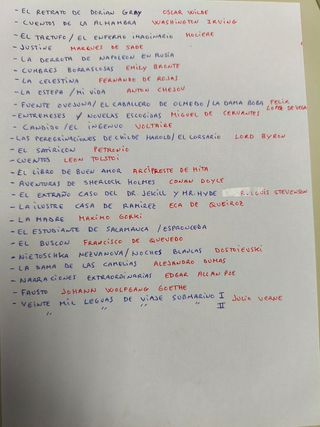 - EL RETRATO DE DORIAN GRAY OSCAR WILDE
- CUENTOS DE LA ALHAMBRA WASHINGTON IRVING
- EL TARTUFO / EL ENFERMO IMAGINARIO MOLIERE
- JUSTINE MARQUES DE SADE
- LA DERROTA DE NAPOLEON EN RUSIA
- CUMBRES BORRASCOSAS EMILY BRONTE
- LA CELESTINA FERNANDO DE ROJAS
- LA ESTEPA / MI VIDA ANTON CHEJOV
- FUENTE OVEJUNA / EL CABALLERO DE OLMEDO / LA DAMA BOBA FELIX LOPE DE VEGA
- ENTREMESES Y NOVELAS ESCOGIDAS MIGUEL DE CERVANTES
- CANDIDO / EL INGENUO VOLTAIRE
- LAS PEREGRINACIONES DE CHILDE HAROLD / EL CORSARIO LORD BYRON
- EL SATIRICON PETRONIO
- CUENTOS LEON TOLSTOI
- EL LIBRO DE BUEN AMOR ARCIPRESTE DE HITA
- AVENTURAS DE SHERLOCK HOLMES CONAN DOYLE
- EL EXTRAÑO CASO DEL DR JEKILL Y MR. HYDE R. LOUIS STEVENSON
- LA ILUSTRE CASA DE RAMIREZ EÇA DE QUEIROZ
- LA MADRE MAXIMO GORKI
- EL ESTUDIANTE DE SALAMANCA / ESPRONCEDA
- EL BUSCON FRANCISCO DE QUEVEDO
- NIETOSCHKA NEZVANOVA / NOCHES BLANCAS DOSTOIEVSKI
- LA DAMA DE LAS CAMELIAS ALEJANDRO DUMAS
- NARRACIONES EXTRAORDINARIAS EDGAR ALLAN POE
- FAUSTO JOHANN WOLFGANG GOETHE
- VEINTE MIL LEGUAS DE VIAJE SUBMARINO I JULIO VERNE
" " " II